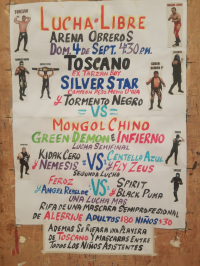 LUCHA LIBRE
ARENA OBREROS
DOM. 4 DE SEPT. 4:30 P.M.
TOSCANO
EX TARZAN BOY
SILVER STAR
CAMPEON PESO MEDIO
Y TORMENTO NEGRO
VS
MONGOL CHINO
GREEN DEMON E INFIERNO
LUCHA SEMIFINAL
KIDAK CERO VS CENTELLA AZUL
Y NEMESIS Y FLY ZEUS
SEGUNDA LUCHA
FEROZ VS SPIRIT
Y ANGEL REBELDE Y BLACK PUMA
UNA LUCHA MAS
RIFA DE UNA MASCARA SEMIPROFESIONAL
DE ALEBRIJE ADULTOS $80 NIÑOS $30
ADEMAS SE RIFARA UNA PLAYERA
DE TOSCANO Y MASCARAS ENTRE
TODOS LOS NIÑOS ASISTENTES